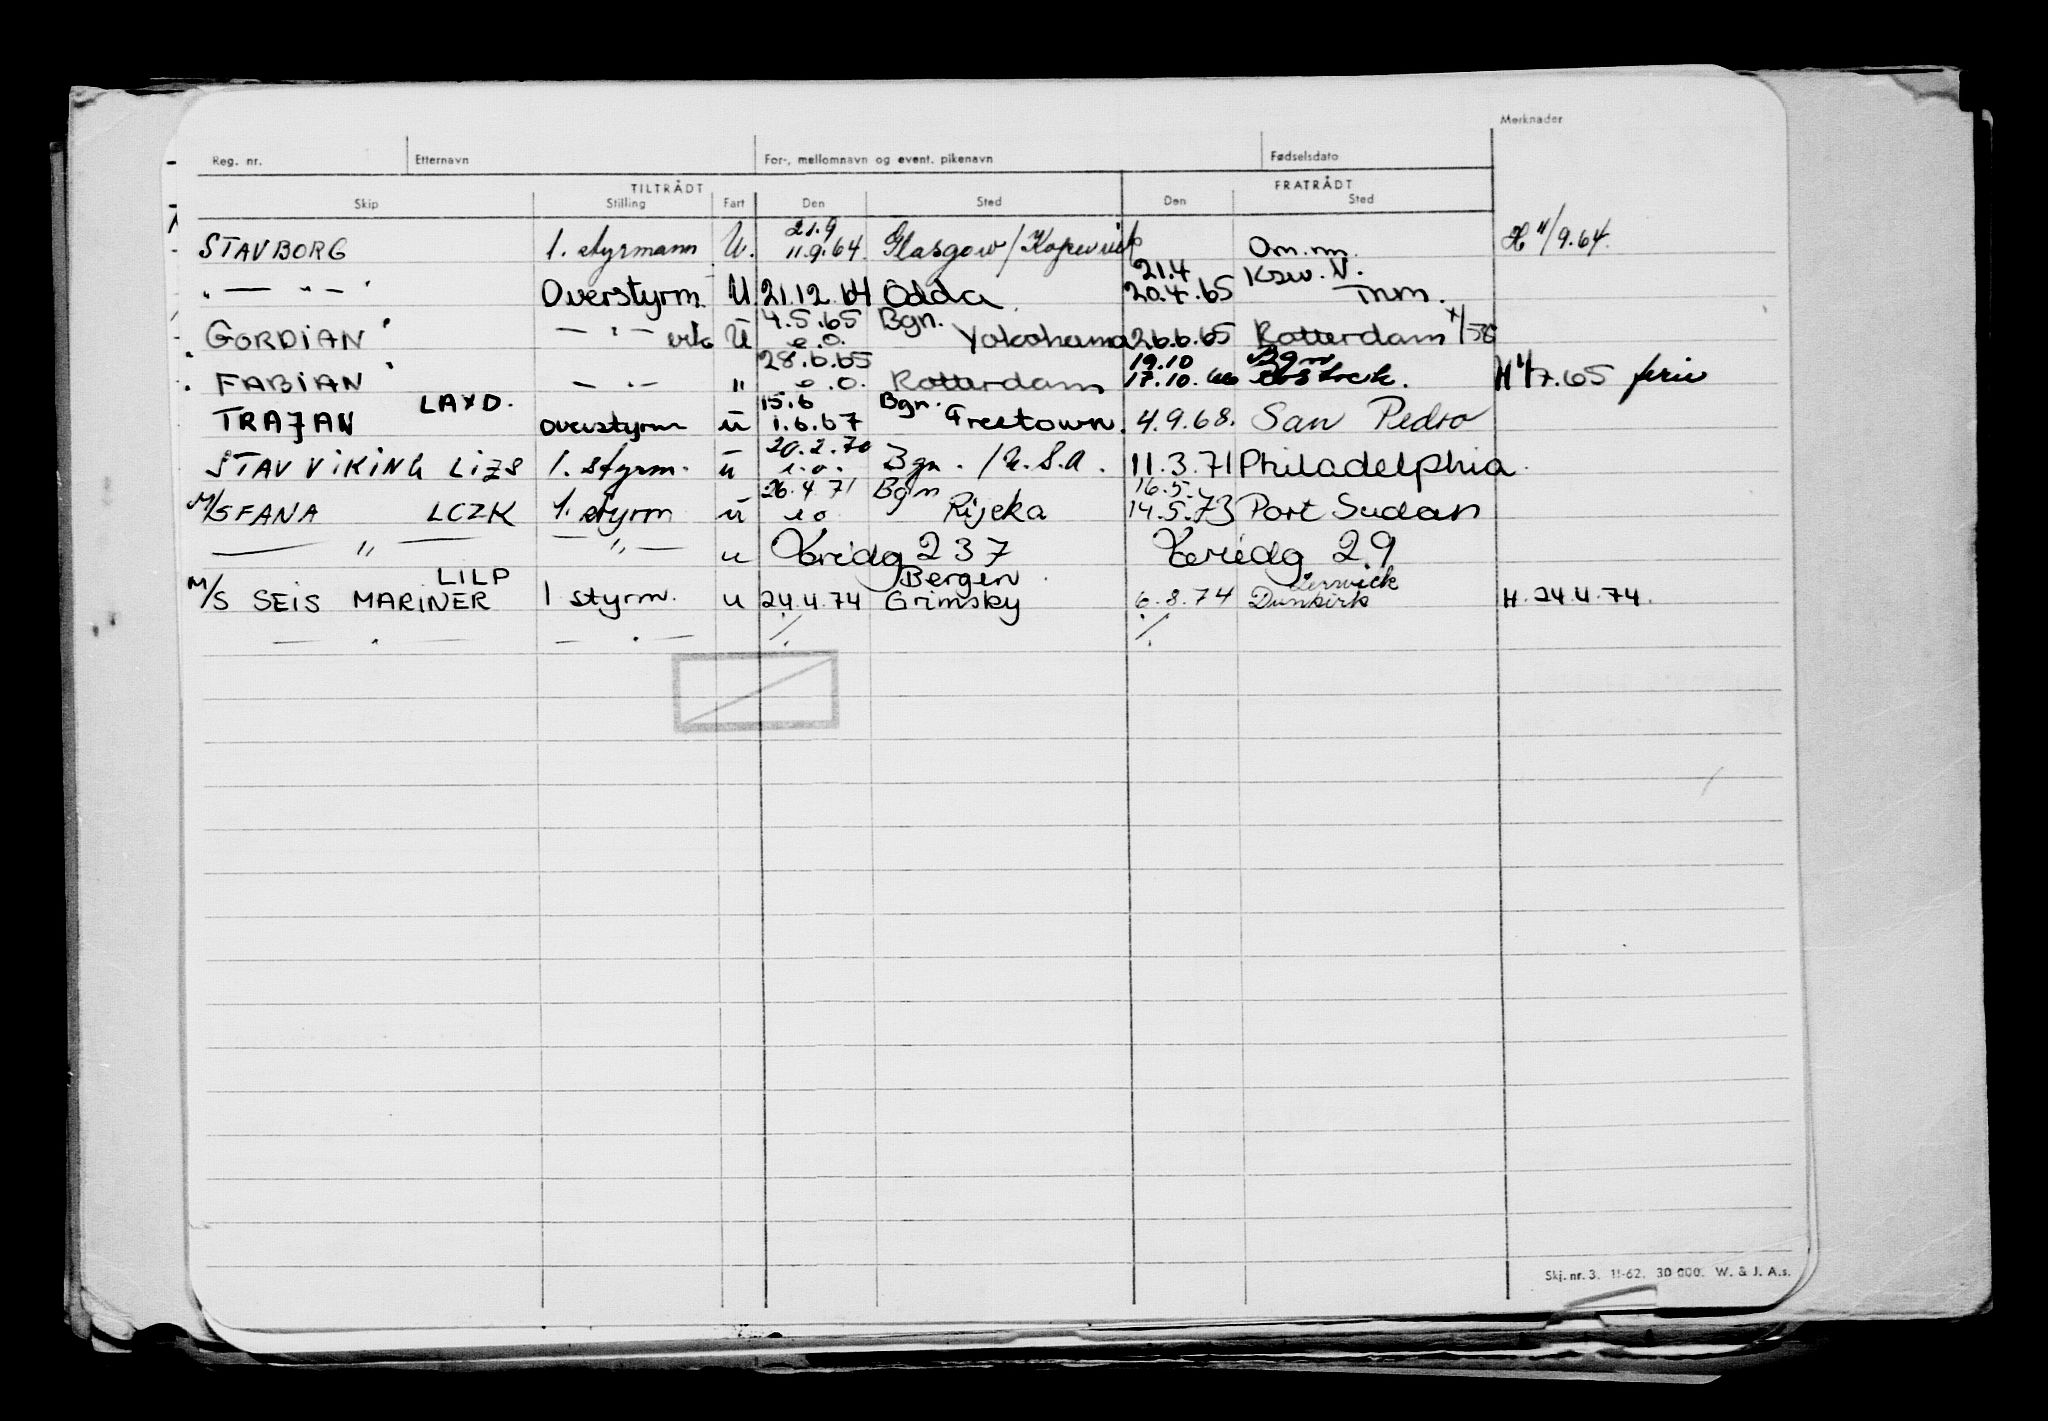 Merknader
Reg. nr. Etternavn For-, mellomnavn og event. pikenavn Fødselsdato
TILTRÅDT FRATRÅDT
Skip Stilling Fart Den Sted Den Sted
21.9
STAVBORG 1. styrmann U. 11.9.64. Glasgow/Kopervik Om. mn. H 11/9.64.
21.4 Ksv. N.
" — " — " Overstyrm. U 21.12.64 Odda 20.4.65 Tmm.
4.5.65 Bgn.
GORDIAN — " — U e.o. Yokohama 26.6.65 Rotterdam
28.6.65 19.10 Bgn
FABIAN — " — " e.o. Rotterdam 17.10.66 H 1/7.65 ferie
LAXD. 15.6 Bgn.
TRAJAN overstyrm u 1.6.67 Freetown. 4.9.68. San Pedro
20.2.70
STAV VIKING LIZS 1. styrm. u e.o. Bgn. / U.S.A. 11.3.71 Philadelphia.
26.4.71 Bgn 16.5.
M/S FANA LCZK 1. styrm u eo Rijeka 14.5.73 Port Sudan
— " — — " — u 237 29
LILP Bergen Lerwick
M/S SEIS MARINER 1 styrm. u 24.4.74 Grimsby 6.8.74 Dunkirk H. 24.4.74.
— " — — " — ./. ./.
Skj. nr. 3. 11-62. 30 000. W. & J. A.s.